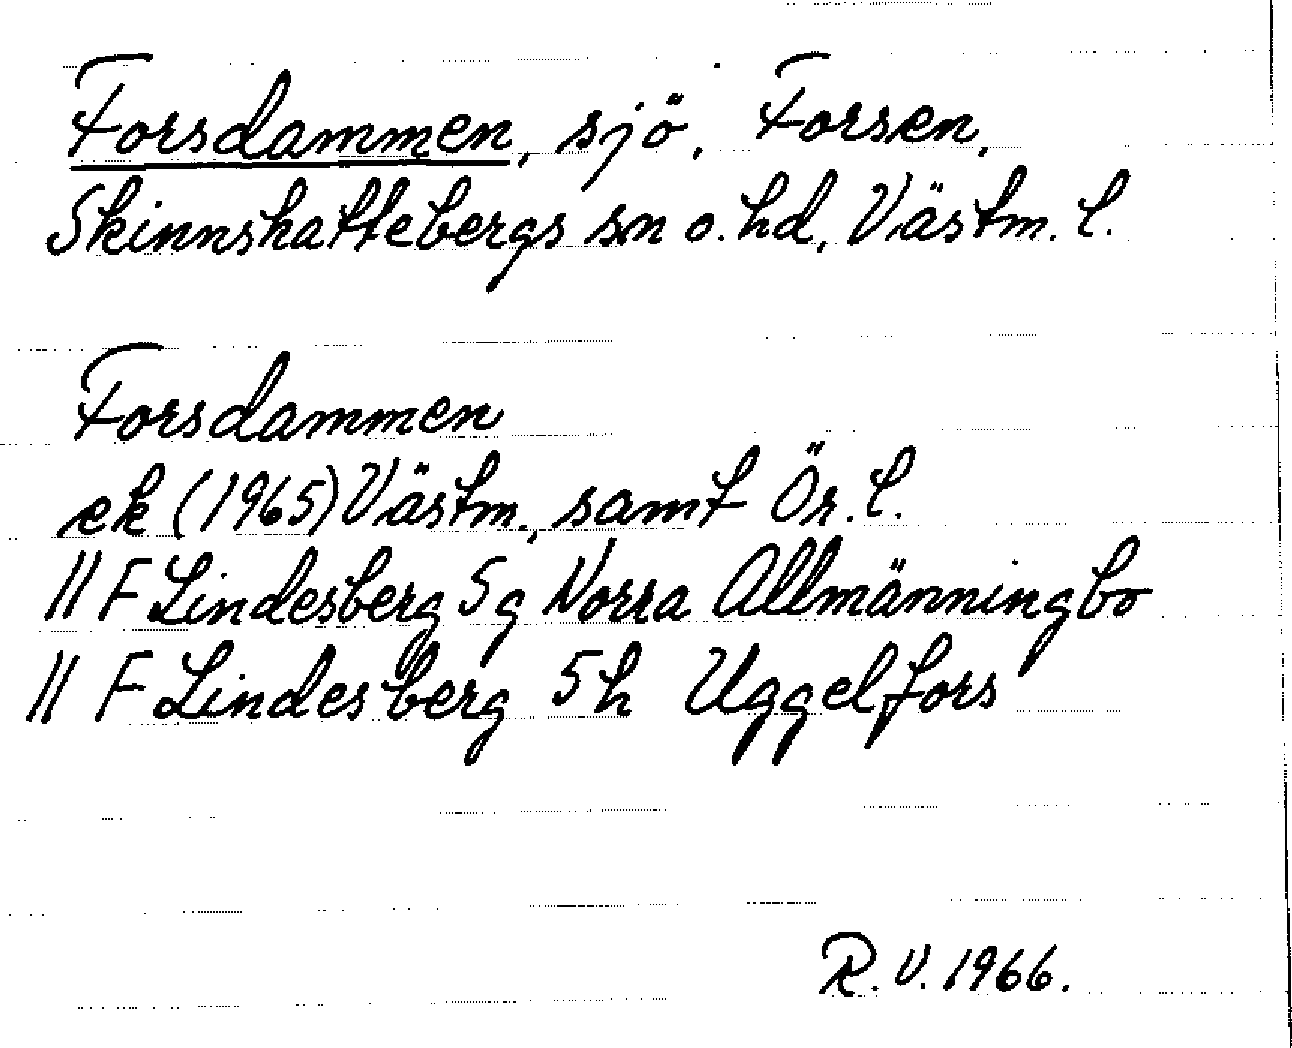 Forsdammen, sjö. Forsen,
Skinnskattebergs sn o. hd, Västm. l.
Forsdammen
ek (1965) Västm., samt Ör. l.
11 F Lindesberg 5g Norra Allmänningbo
11 F Lindesberg 5h Uggelfors
R. V. 1966.